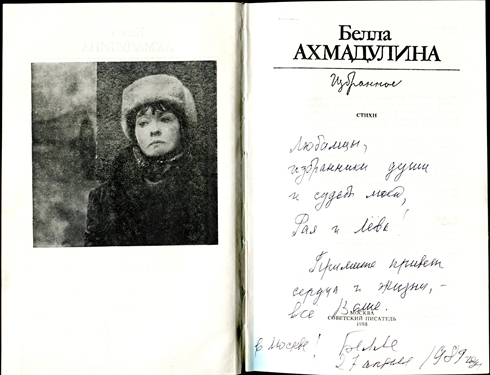 Белла
АХМАДУЛИНА
Избранное
СТИХИ
Любимцы,
избранники души
и судьбы моей,
Рая и Лёва!
Примите привет
сердца и жизни, –
все Ваше.
МОСКВА
СОВЕТСКИЙ ПИСАТЕЛЬ
1988
в Москве! Белла
27 апреля 1989 года